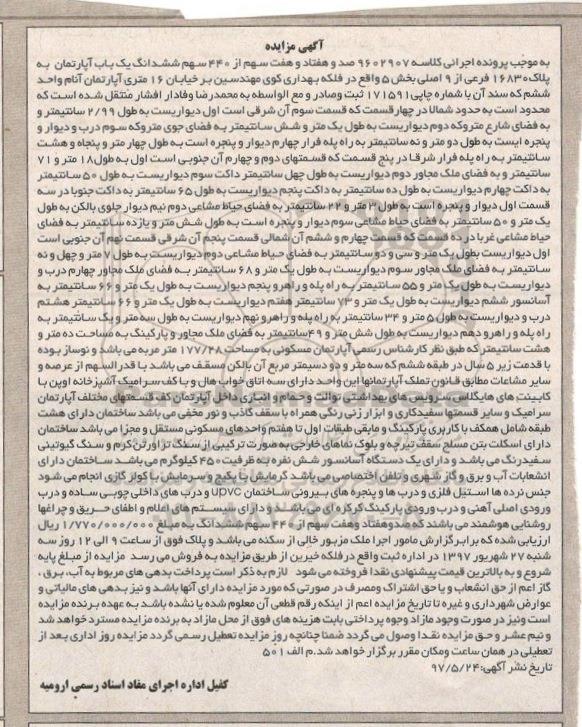 آگهی مزایده
به موجب پرونده اجرائی کلاسه ۹۶۰۲۹۰۷ صد و هفتاد و هفت سهم از ۴۴۰ سهم ششدانگ یک باب آپارتمان به
پلاک ۱۶۸۳۰ فرعی از ۹ اصلی بخش ۵ واقع در فلکه بهداری کوی مهندسین بر خیابان ۱۶ متری آپارتمان آنام واحد
ششم که سند آن با شماره چاپی ۱۷۱۵۹۱ ثبت وصادر و مع الواسطه به محمدرضا وفادار افشار منتقل شده است که
محدود است به حدود شمالا در چهار قسمت که قسمت سوم آن شرقی است اول دیواریست به طول ۲/۹۹ سانتیمتر و
به فضای شارع متروکه دوم دیواریست به طول یک متر و شش سانتیمتر به فضای جوی متروکه سوم درب و دیوار و
پنجره ایست به طول دو متر و نه سانتیمتر به راه پله فرار چهارم دیوار و پنجره است به طول چهار متر و پنجاه و هشت
سانتیمتر به راه پله فرار شرقا در پنج قسمت که قسمتهای دوم و چهارم آن جنوبی است اول به طول ۱۸ متر و ۷۱
سانتیمتر و به فضای ملک مجاور دوم دیواریست به طول چهل سانتیمتر داکت سوم دیواریست به طول ۵۰ سانتیمتر
به داکت چهارم دیواریست به طول ده سانتیمتر به داکت پنجم دیواریست به طول ۶۵ سانتیمتر به داکت جنوبا در سه
قسمت اول دیوار و پنجره است به طول ۳ متر و ۲۲ سانتیمتر به فضای حیاط مشاعی دوم نیم دیوار جلوی بالکن به طول
یک متر و ۵۰ سانتیمتر به فضای حیاط مشاعی سوم دیوار و پنجره است به طول شش متر و یازده سانتیمتر به فضای
حیاط مشاعی غربا در ده قسمت که قسمت چهارم و ششم آن شمالی قسمت پنجم آن شرقی قسمت نهم آن جنوبی است
اول دیواریست بطول یک متر و سی و دو سانتیمتر به فضای حیاط مشاعی دوم دیواریست به طول ۱۰ متر و چهل و نه
سانتیمتر به فضای ملک مجاور سوم دیواریست به طول یک متر و ۶۸ سانتیمتر به فضای ملک مجاور چهارم درب و
دیواریست به طول یک متر و ۵۵ سانتیمتر به راه پله و راهرو پنجم دیواریست به طول یک متر و ۶۶ سانتیمتر به
آسانسور ششم دیواریست به طول یک متر و ۷۳ سانتیمتر هفتم دیواریست به طول یک متر و ۶۶ سانتیمتر هشتم
درب و دیواریست به طول ۵ متر و ۳۴ سانتیمتر به راه پله و راهرو نهم دیواریست به طول سه متر و یک سانتیمتر به
راه پله و راهرو دهم دیواریست به طول شش متر و ۴۹ سانتیمتر به فضای ملک مجاور و پارکینگ به مساحت ده متر و
هشت سانتیمتر که طبق نظر کارشناس رسمی آپارتمان مسکونی به مساحت ۱۷۷/۴۸ متر مربه می باشد و نوساز بوده
با قدمت زیر ۵ سال در طبقه ششم که سه متر و دو دسیمتر مربع آن بالکن مسقف می باشد با قدرالسهم از عرصه و
سایر مشاعات مطابق قانون تملک آپارتمانها این واحد دارای سه اتاق خواب هال و با کف سرامیک آشپزخانه اوپن با
کابینت های هایگلاس سرویس های بهداشتی توالت و حمام و انباری داخل آپارتمان کف قسمتهای مختلف آپارتمان
سرامیک و سایر قسمتها سفیدکاری و ابزار زنی رنگی همراه با سقف کاذب و نور مخفی می باشد ساختمان دارای هشت
طبقه شامل همکف با کاربری پارکینگ و مابقی طبقات اول تا هفتم واحدهای مسکونی مستقل و مجزا می باشد ساختمان
دارای اسکلت بتن مسلح سقف تیرچه و بلوک نماهای خارجی به صورت ترکیبی از سنگ تراورتن کرم و سنگ گیوتینی
سفید رنگ می باشد و دارای یک دستگاه آسانسور شش نفره به ظرفیت ۴۵۰ کیلوگرم می باشد ساختمان دارای
انشعابات آب و برق و گاز شهری و تلفن اختصاصی می باشد گرمایش با پکیج و سرمایش با کولر گازی انجام می شود
جنس نرده ها استیل فلزی و درب ها و پنجره های بیرونی ساختمان upvc و درب های داخلی چوبی ساده و درب
ورودی اصلی آهنی و درب ورودی پارکینگ کرکره ای می باشد و دارای سیستم های اعلام و اطفای حریق و چراغها
روشنایی هوشمند می باشند که صدوهفتاد وهفت سهم از ۴۴۰ سهم ششدانگ به مبلغ ۱/۷۷۰/۰۰۰/۰۰۰ ریال
ارزیابی شده که برابر گزارش مامور اجرا ملک مزبور خالی از سکنه می باشد و پلاک فوق از ساعت ۹ الی ۱۲ روز سه
شنبه ۲۷ شهریور ۱۳۹۷ در اداره ثبت واقع در فلکه خیرین از طریق مزایده به فروش می رسد مزایده از مبلغ پایه
شروع و به بالاترین قیمت پیشنهادی نقدا فروخته می شود لازم به ذکر است پرداخت بدهی های مربوط به آب، برق ،
گاز اعم از حق انشعاب و یا حق اشتراک ومصرف در صورتی که مورد مزایده دارای آنها باشد و نیز بدهی های مالیاتی و
عوارض شهرداری و غیره تا تاریخ مزایده اعم از اینکه رقم قطعی آن معلوم شده یا نشده باشد به عهده برنده مزایده
است ونیز در صورت وجود مازاد وجوه پرداختی بابت هزینه های فوق از محل مازاد به برنده مزایده مسترد خواهد شد
و نیم عشر و حق مزایده نقدا وصول می گردد ضمنا چنانچه روز مزایده تعطیل رسمی گردد مزایده روز اداری بعد از
تعطیلی در همان ساعت ومکان مقرر برگزار خواهد شد.م الف ۵۰۱
تاریخ نشر آگهی: ۹۷/۵/۲۴
کفیل اداره اجرای مفاد اسناد رسمی ارومیه